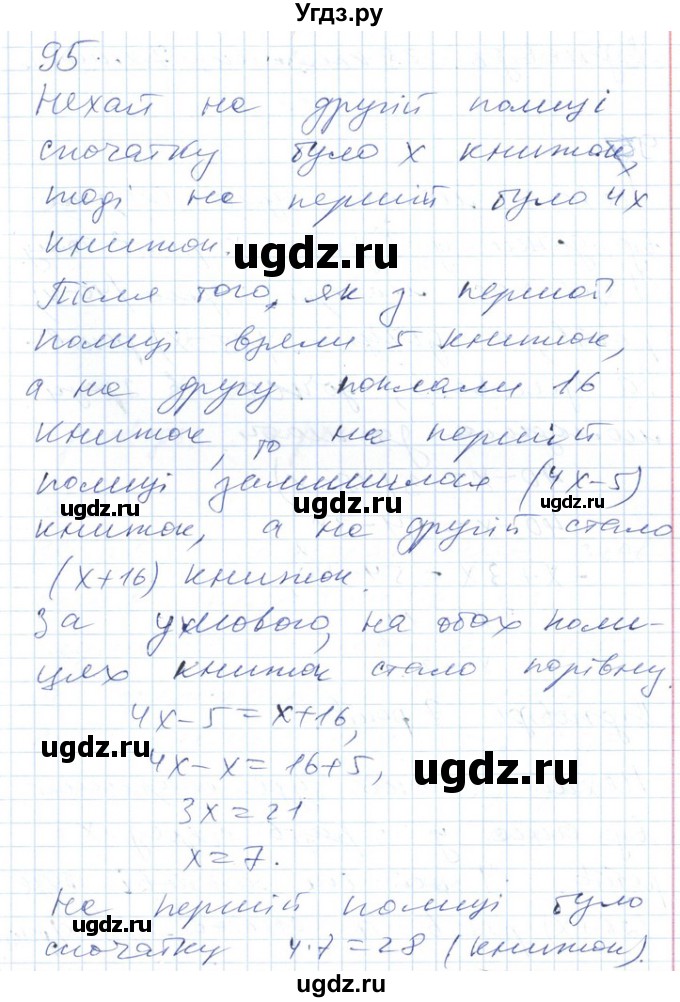 Угдз.ру
95
Нехай на другій полиці
спочатку було x книжок,
тоді на першій було 4x
книжок.
ugdz.ru
Після того, як з першої
полиці взяли 5 книжок,
а на другу поклали 16
книжок, то на першій
полиці залишилася (4x-5)
ugdz.ru ugdz.ru ugdz.ru
книжок, а на другій стало
(x+16) книжок.
За умовою, на обох поли-
цях книжок стало порівну.
4x-5=x+16,
ugdz.ru
4x-x=16+5,
ugdz.ru
3x=21
x=7.
На першій полиці було
спочатку 4·7=28 (книжок).
ugdz.ru